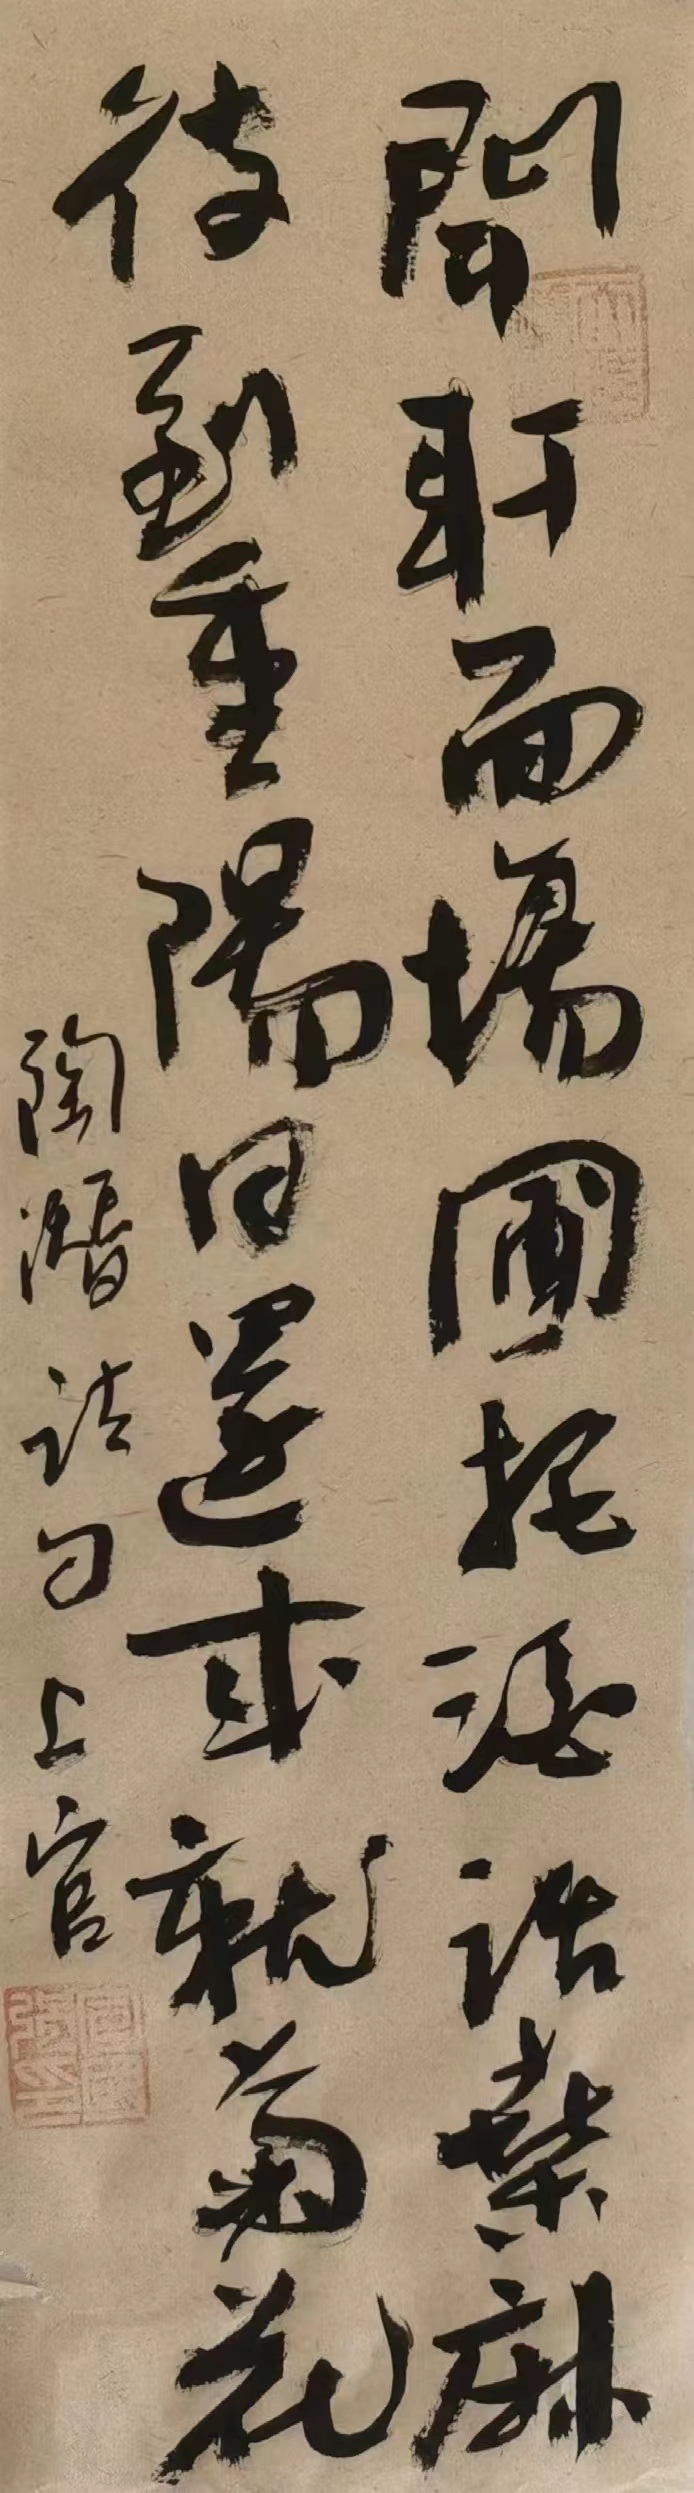 開軒面場圃把酒話桑麻
待到重陽日還來就菊花
陶潛詩句上官